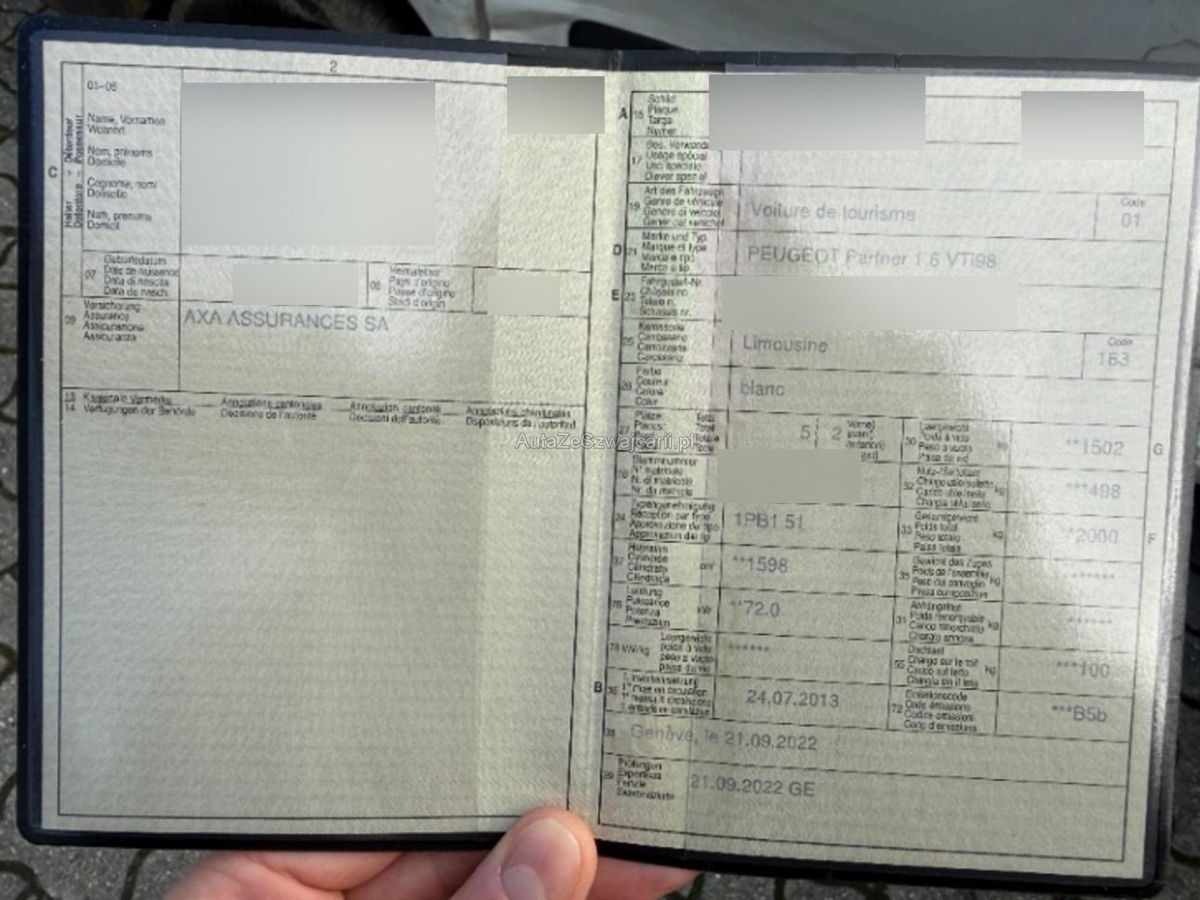 2
01-06
C
Halter - Détenteur
Detentore - Possessur
Name, Vornamen
Wohnort
Nom, prénoms
Domicile
Cognome, nomi
Domicilio
Num, prenums
Domicil
07
Geburtsdatum
Date de naissance
Data di nascita
Data da nasch.
08
Heimatstaat
Pays d'origine
Paese d'origine
Stadi d'origin
09
Versicherung
Assurance
Assicurazione
Assicuranza
AXA ASSURANCES SA
13 Kantonale Vermerke
14 Verfügungen der Behörde
Annotations cantonales
Décisions de l'autorité
Annotazioni cantonali
Decisioni dell'autorità
Annotaziuns chantunalas
Disposiziuns da l'autoritad
AutaZeSzwajcarii.pl
A 15
Schild
Plaque
Targa
Numer
17
Bes. Verwendung
Usage spécial
Uso speciale
Diever spezial
19
Art des Fahrzeugs
Genre de véhicule
Genere di veicolo
Gener dal vehichel
Voiture de tourisme
Code
01
D 21
Marke und Typ
Marque et type
Marca e tipo
Marca e tip
PEUGEOT Partner 1.6 VTi98
E 23
Fahrgestell-Nr.
Châssis no
Telaio n.
Schassis nr.
25
Karosserie
Carrosserie
Carrozzeria
Carossaria
Limousine
Code
163
26
Farbe
Couleur
Colore
Color
blanc
27
Plätze
Places
Total
5
2
30
Leergewicht
Poids à vide
Peso a vuoto
Paisa da vid
kg
**1502
G
18
Stammnummer
N° matricule
N. di matricola
Nr. da matricla
32
Nutz-/Sattellast
Charge utile/sellette
Carico utile/sella
Chargia utila/sella
kg
***498
24
Typengenehmigung
Réception par type
Approvazione del tipo
Approvaziun dal tip
1PB1 51
33
Gesamtgewicht
Poids total
Peso totale
Paisa totala
kg
**2000
F
37
Hubraum
Cylindrée
Cilindrata
Cilindrada
cm³
**1598
35
Gewicht des Zuges
Poids de l'ensemble
Peso del convoglio
Paisa cumposiziun
kg
******
76
Leistung
Puissance
Potenza
Prestaziun
kW
**72.0
31
Anhängelast
Poids remorquable
Carico rimorchiato
Chargia annexa
kg
******
78 kW/kg
Leergewicht
poids à vide
peso a vuoto
paisa da vid
******
55
Dachlast
Charge sur le toit
Carico sul tetto
Chargia sin il tetg
kg
***100
B 36
1. Inverkehrsetzung
1re mise en circulation
1a messa in circolazione
24.07.2013
72
Emissionscode
Code émissions
Codice emissioni
Code d'emissiuns
***B5b
38
Genève, le 21.09.2022
39
Prüfungen
Expertises
Perizie
Examinaziuns
21.09.2022 GE